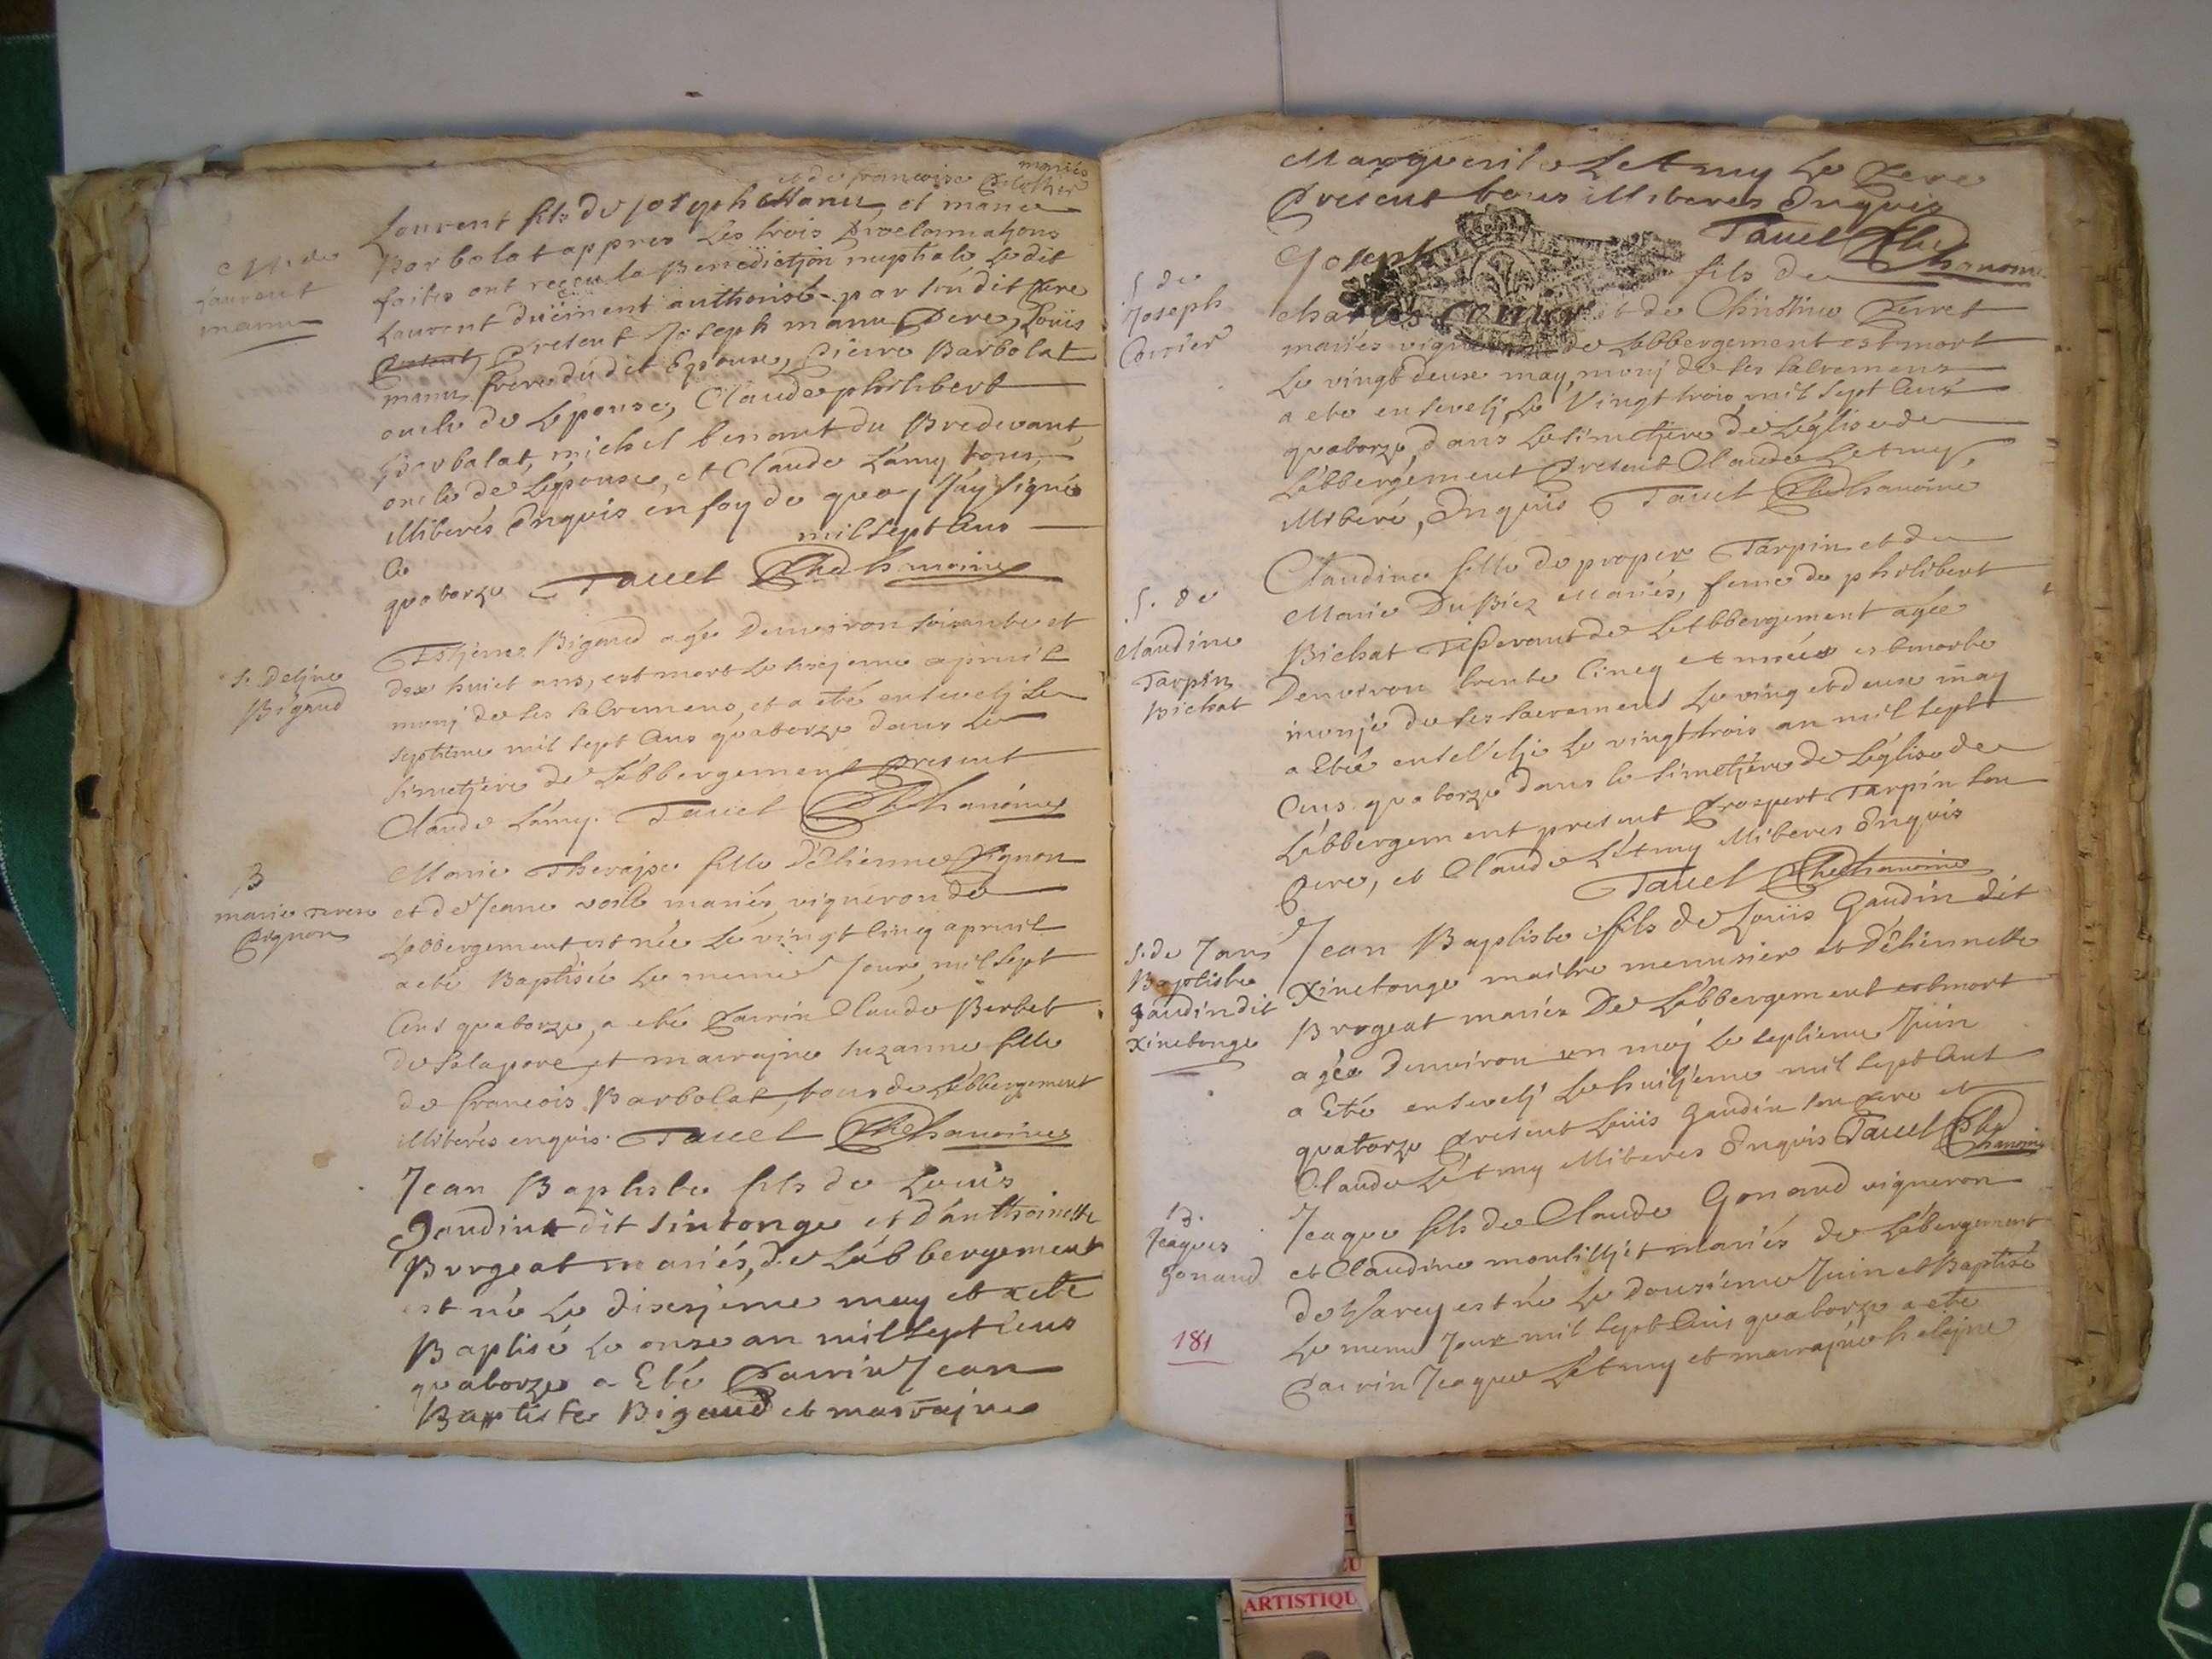 mariés
et de francoise
Laurent fils de joseph Manu, et marie
Barbolat appres les trois proclamations
faites ont reçeu la Benedictjon nuptiale le dit
Laurent düement authorisé par son dit pere
present Joseph manu pere, Louis
manu frere du dit Epoux, pierre Barbolat
oncle de Lépouse, Claude philibert
Barbalat, michel benant du Bredevant
oncle de Lépouse, et Claude Lámy tous
illiberés Enquis en foy de quoy jáy signé
Ce mil sept Cens
quatorze Tavel Chanoine
M. de
Laurent
manu
S. Detjne
Bigaud
Estjenne Bigaud agé Denviron soixante et
dix huict ans, est mort le sixjeme apvril
munj de ses sacremens, et a eté ensevelj le
septieme mil sept Cens quatorze dans le
simetjere de Lábbergement present
Claude Lámy. Tavel Chanoine
B
marie terese
pignon
Marie Therajse fille D'Etienne pignon
et de Jeane mariés, vigneron de
Lábbergement est née le vingt Cinq apvril
a eté Baptisée le meme Jour, mil sept
Cens quatorze, a eté parrin Claude Berbet
de et marrajne suzanne fille
de francois Barbolat, tous de Lábbergement
illiberés enquis. Tavel Chanoine
Jean Baptiste fils de Louis
Gaudin dit sintonge et dánthoinette
Brogeat mariés, de Lábbergement
est né Le dixjeme may et a eté
Baptisé Le onze an mil sept Cens
quatorze a Eté parrin Jean
Baptiste Bigaud et marrajne
Marguerite LeAmy Le pere
present tous illiberés Enquis
Tavel Chanoine
S de
Joseph
Corrier
Joseph fils de
Charles Corrier et de Christine perret
mariés vigneron de Labbergement est mort
Le vingt deux may, munj de ses sacremens
a ete ensevelj Le Vingt trois mil sept Cens
quatorze, dans Le simetjere de Léglise de
Lábbergement present Claude LeAmy,
illiberé, Enquis Tavel Chanoine
S. de
Claudine
Tarpin
Bichat
Claudine fille de proper Tarpin et de
Marie DuBiez Mariés, feme de philibert
Bichat Tisserant de LeAbbergement agée
Denviron trente Cinq année est morte
munje de ses sacremens Le ving et deux may
a Etée ensevelje Le vingt trois an mil sept
Cens quatorze dans le simetjere de Léglise de
Lábbergement present prospert Tarpin son
pere, et Claude LeAmy illiberes Enquis
Tavel Chanoine
S. de Jean
Baptiste
gaudin dit
xinetonge
Jean Baptiste fils de Louis Gaudin dit
xinetonge maitre menusier et D'Etiennette
Brogeat mariés De Lábbergement est mort
agée Denviron un moj Le septieme Juin
a Eté ensevelj Le huitjeme mil sept Cent
quatorze present Louis Gaudin son pere et
Claude LeAmy illiberes Enquis Tavel Chanoine
B.
Jeaques
gonaud
Jeaque fils de Claude Gonaud vigneron
et Claudine mariés de Lábergement
de est né Le douzieme Juin et Baptisé
Le meme Jour mil sept Cens quatorze a eté
parrin Jeaque LeAmy et marrajne helejne
181
ARTISTIQU